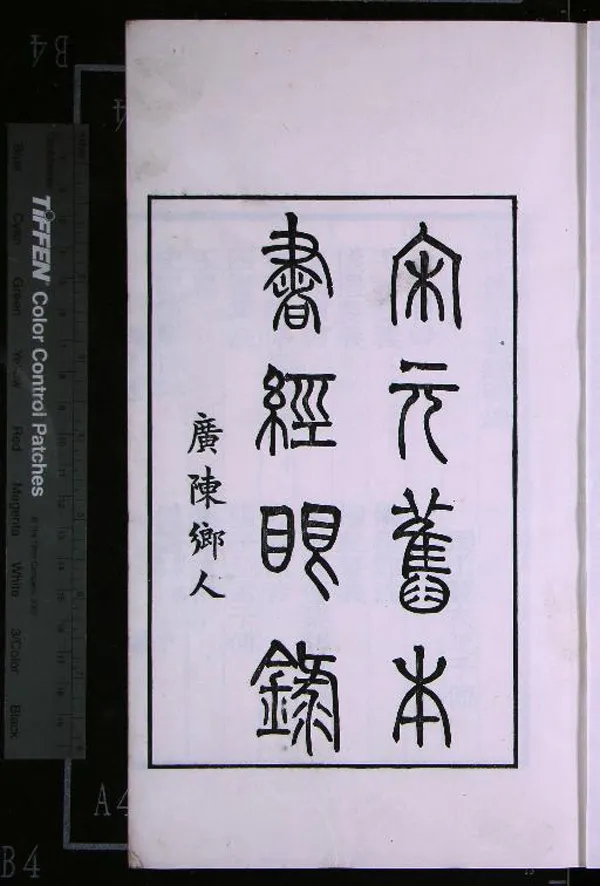 宋元舊本
書經眼錄
廣陳鄉人
TIFFEN Color Control Patches
Blue
Cyan
Green
Yellow
Red
Magenta
White
3/Color
Black
B4
A4
A4
B4